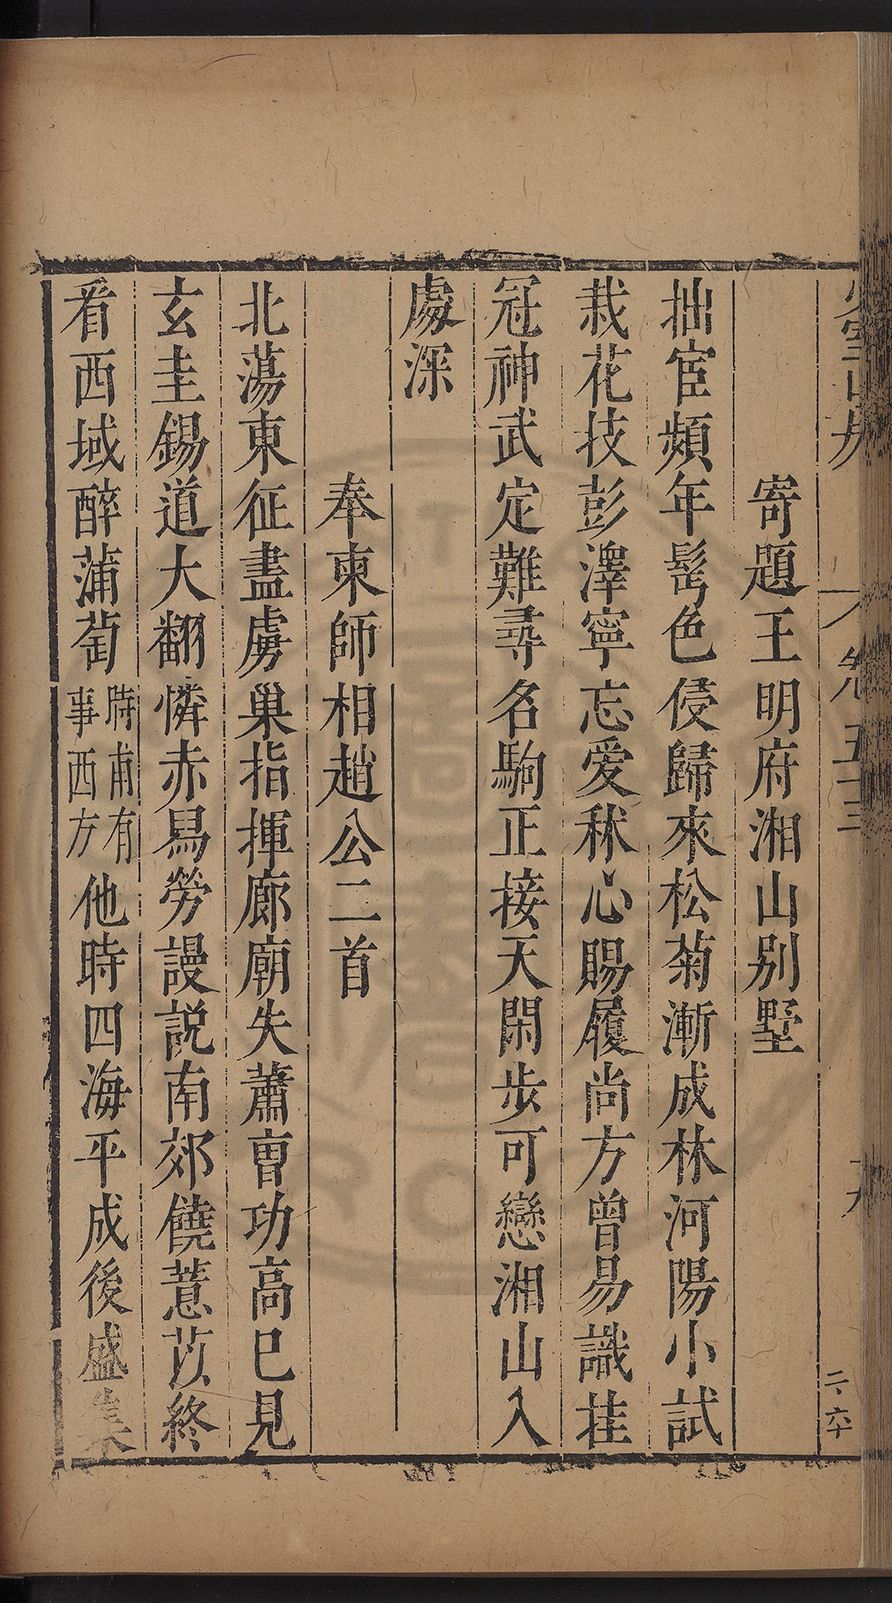 少室山房
卷五十三
十九
二、六十
寄題王明府湘山別墅
拙宦頻年髩色侵歸來松菊漸成林河陽小試
栽花技彭澤寧忘愛秫心賜履尚方曾易識挂
冠神武定難尋名駒正接天閑步可戀湘山入
處深
奉柬師相趙公二首
北蕩東征盡虜巢指揮廊廟失蕭曺功高已見
玄圭錫道大翻憐赤舄勞謾説南郊饒薏苡終
看西域醉蒲萄時甫有事西方他時四海平成後盛集